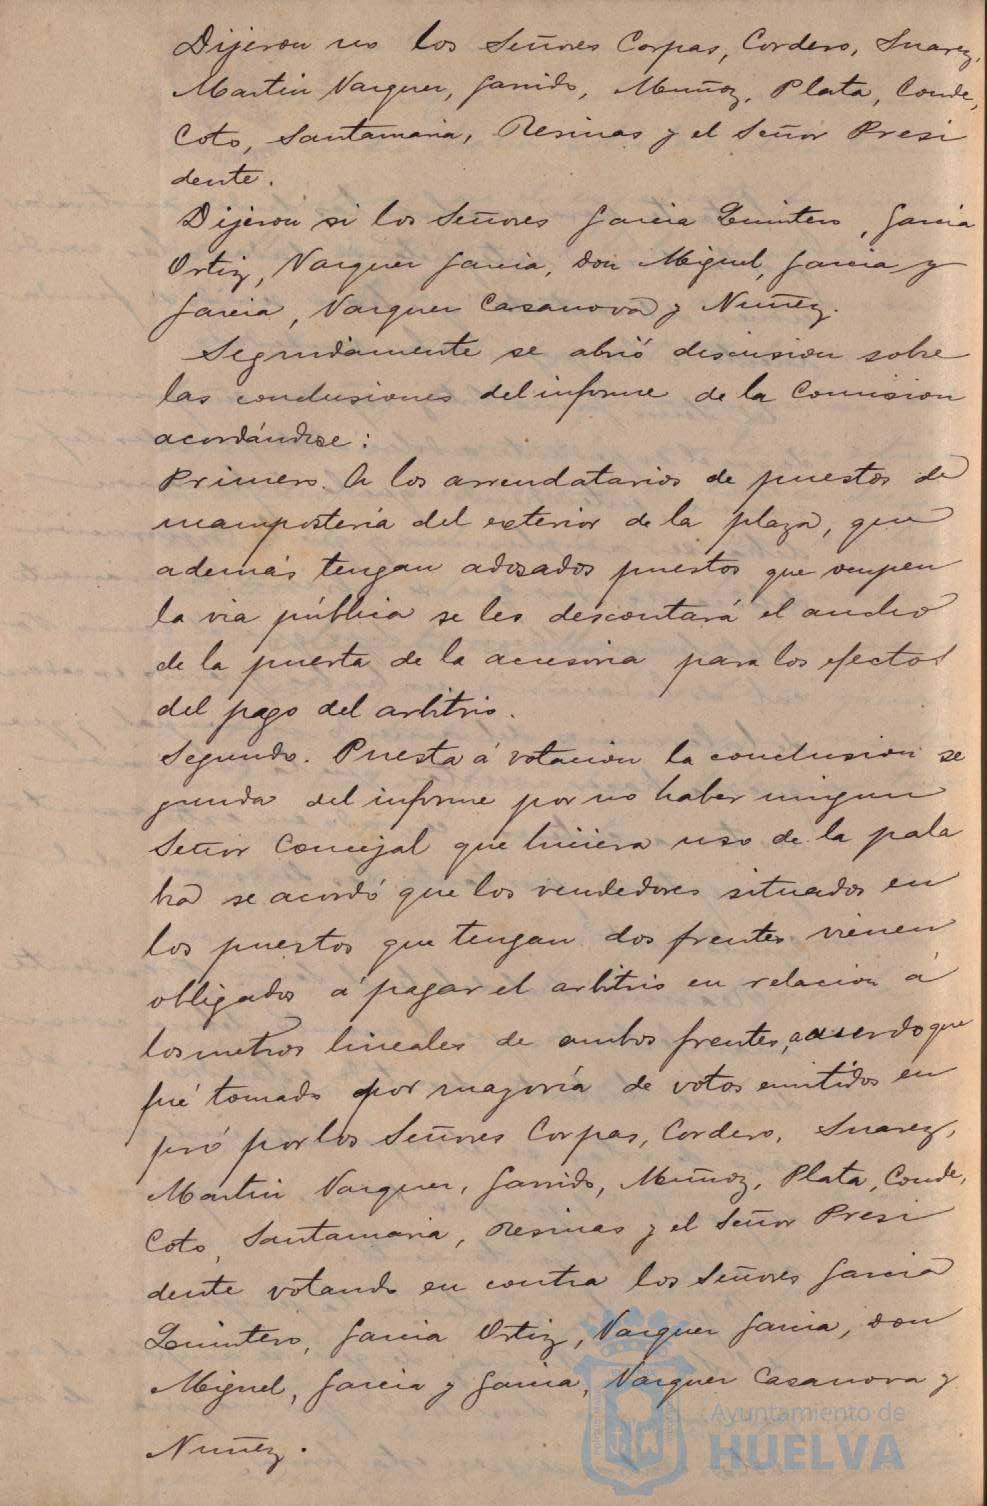 Dijeron no los Señores Corpas, Cordero, Suarez,
Martin Vazquez, Garrido, Muñoz, Plata, Conde,
Coto, Santamaria, Resinas y el Señor Presi
dente.
Dijeron si los Señores Garcia Quintero, Garcia
Ortiz, Vazquez Garcia, don Miguel, Garcia y
Garcia, Vazquez Casanova y Nuñez.
Seguidamente se abrió discusion sobre
las conclusiones del informe de la Comision
acordándose:
Primero. A los arrendatarios de puestos de
mampostería del exterior de la plaza, que
además tengan adosados puestos que ocupen
la via pública se les descontará el ancho
de la puerta de la accesoria para los efectos
del pago del arbitrio.
Segundo. Puesta á votacion la conclusion se
gunda del informe por no haber ningun
Señor Concejal que hiciera uso de la pala
bra se acordó que los vendedores situados en
los puestos que tengan dos frentes vienen
obligados á pagar el arbitrio en relacion á
los metros lineales de ambos frentes, acuerdo que
fué tomado por mayoría de votos emitidos en
pró por los Señores Corpas, Cordero, Suarez,
Martin Vazquez, Garrido, Muñoz, Plata, Conde,
Coto, Santamaria, Resinas y el Señor Presi
dente votando en contra los Señores Garcia
Quintero, Garcia Ortiz, Vazquez Garcia, don
Miguel, Garcia y Garcia, Vazquez Casanova y
Nuñez.
Ayuntamiento de
HUELVA